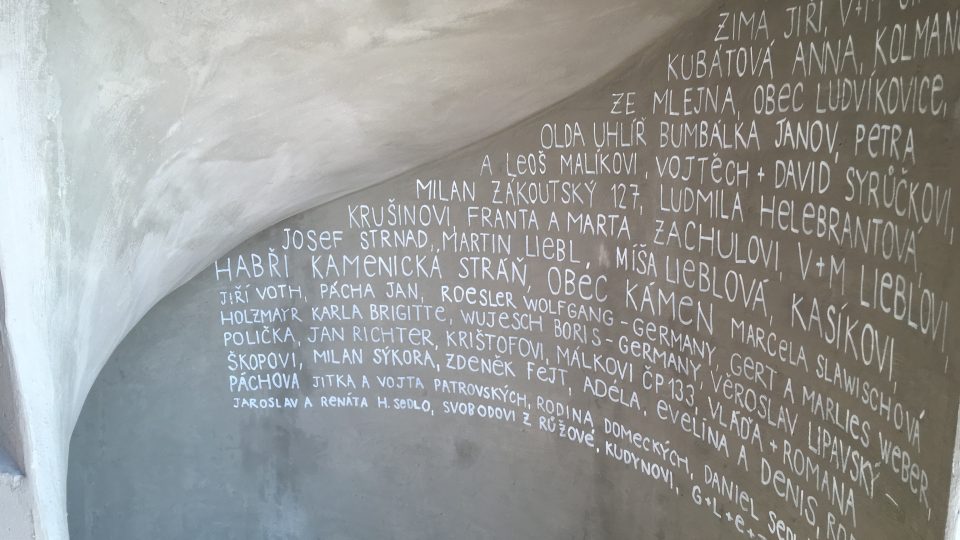 ZIMA JIŘÍ, V+M
KUBÁTOVÁ ANNA, KOLMAN
ZE MLEJNA, OBEC LUDVÍKOVICE,
OLDA UHLÍŘ BUMBÁLKA JÁNOV, PETRA
A LEOŠ MALÍKOVI, VOJTĚCH + DAVID SYRŮČKOVI,
MILAN ZÁKOUTSKÝ 127, LUDMILA HELEBRANTOVÁ,
KRUŠINOVI FRANTA A MARTA, ZACHULOVI, V+M LIEBLOVI,
JOSEF STRNAD, MARTIN LIEBL, MÍŠA LIEBLOVÁ, KASÍKOVI,
HABŘÍ KAMENICKÁ STRÁŇ, OBEC KÁMEN MARCELA SLAWISCHOVÁ
JIŘÍ VOTH, PÁCHA JAN, ROESLER WOLFGANG - GERMANY, GERT A MARLIES WEBER,
HOLZMAYR KARLA BRIGITTE, WUJESCH BORIS - GERMANY, VĚROSLAV LIPAVSKÝ -
POLIČKA, JAN RICHTER, KRIŠTOFOVI, MÁLKOVI ČP 133, VLAĎA + ROMANA
ŠKOPOVI, MILAN SÝKORA, ZDENĚK FEJT, ADÉLA, EVELÍNA A DENIS,
PÁCHOVÁ JITKA A VOJTA PATROVSKÝCH, RODINA DOMECKÝCH, DANIEL
JAROSLAV A RENÁTA H. SEDLO, SVOBODOVI Z RŮŽOVÉ, KUDYNOVI, G+L+E+